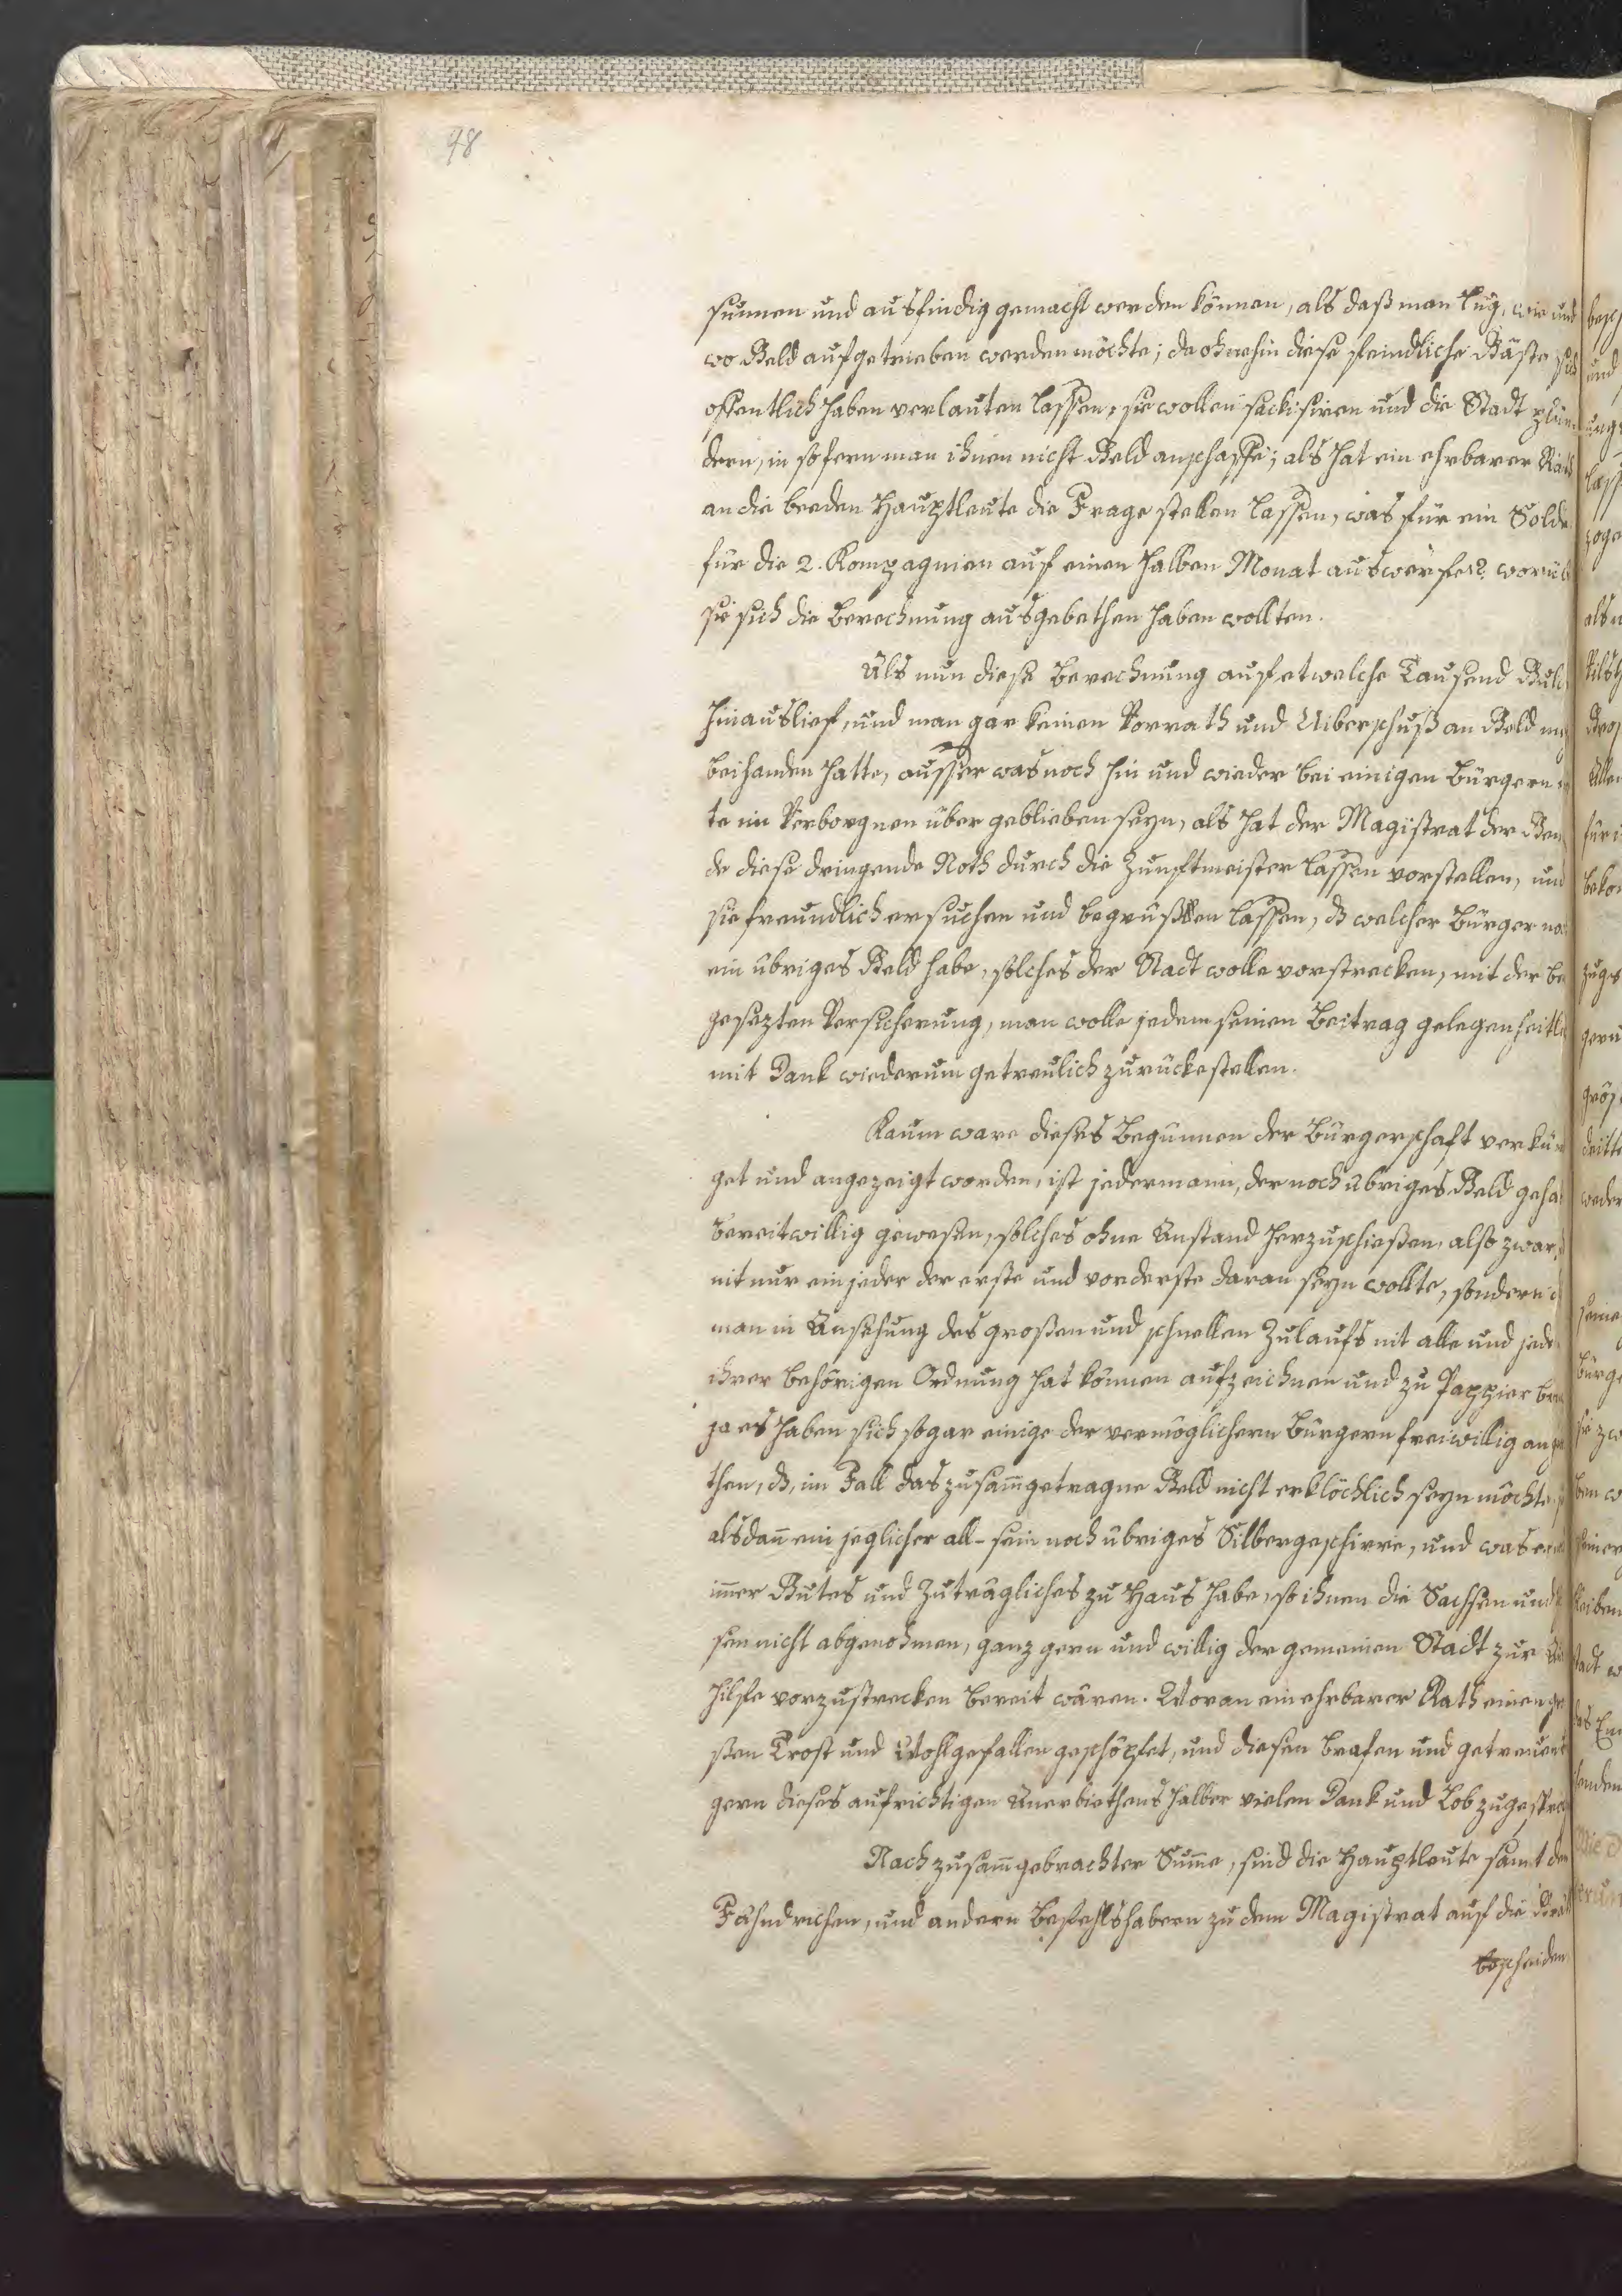 98
sunnen und ausfindig gemacht werden können, als daß man lug, wie und
wo Geld aufgetrieben werden möchte; da ohnehin diese feindliche Gäste sich
offentlich haben verlauten lassen, sie wollen sackisiren und die Stadt plün
dern, in sofern man ihnen nicht Geld anschaffe; als hat ein ehrbarer Rath
an die beeden Hauptleute die Frage stellen lassen, was für ein Solde
für die 2. Kompagnien auf einen halben Monat auswerfe? worüb
sie sich die Berechnung ausgebethen haben wollten.
Als nun diese Berechnung auf etwelche Tausend Guld
hinauslief, und man gar keinen Vorrath und Uiberschuß an Geld me
beihanden hatte, ausser was noch hin und wieder bei einigen Bürgern
te im Verborgnen über geblieben seyn, als hat der Magistrat der Gem
de diese dringende Noth durch die Zunftmeister lassen vorstellen, und
sie freundlich ersuchen und begrüßen lassen, dß welcher Bürger no
ein übriges Geld habe, solches der Stadt wolle vorstrecken, mit der be
gesezten Versicherung, man wolle jedem seinen Beitrag gelegenheitl
mit Dank wiederum getreulich zurückestellen.
Kaum ware dieses Begunnen der Bürgerschaft verkün
get und angezeigt worden, ist jedermann, der noch übriges Geld geha
bereitwillig gewesen, solches ohne Anstand herzuschießen, also zwar,
nit nur ein jeder der erste und vorderste daran seyn wollte, sondern
man in Ansehung des großen und schnellen Zulaufs nit alle und jede
ihrer behörigen Ordnung hat können aufzeichnen und zu Pappier br
ja es haben sich sogar einige der vermöglichern Bürgern freiwillig an
then, dß, im Fall das zusam̅getragne Geld nicht erklöcklich seyn möchte
alsdan̅ ein jeglicher all- sein noch übriges Silbergeschirre, und was er
im̅er Gutes und Zuträgliches zu Haus habe, so ihnen die Sachsen und
sen nicht abgenohmen, ganz gern und willig der gemeinen Stadt zur
hilfe vorzustrecken bereit wären. Woran ein ehrbarer Rath einen gr
ßen Trost und Wohlgefallen geschöpfet, und diesen brafen und getreuen
gern dieses aufrichtigen Anerbiethens halber vielen Dank und Lob zugespro
Nach zusam̅gebrachter Sum̅e, sind die Hauptleute samt den
Fähndrichen, und andern Befehlshabern zu dem Magistrat auf die
bescheiden